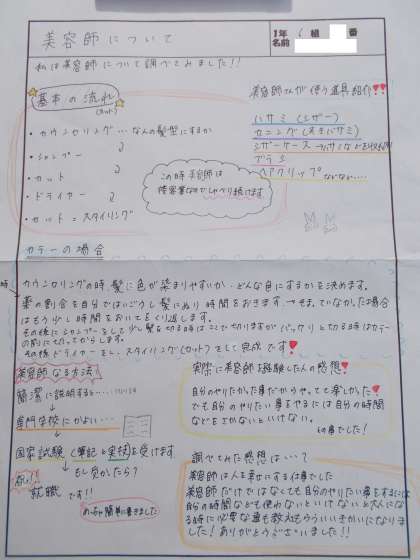 美容師について
1年 組 番
名前
私は美容師について調べてみました!!
基本の流れ
(カット)
・カウンセリング…なんの髪型にするか
・シャンプー
・カット
・ドライヤー
・セット=スタイリング
この時美容師は
接客業なのでしゃべり続けます
美容師さんが使う道具紹介!!
ハサミ(シザー)
カニング(すきバサミ)
シザーケース→ハサミなどをいれる
ブラシ
ヘアクリップ などなど…
カラーの場合
カウンセリングの時、髪に色が染まりやすいか、どんな色にするかを決めます。
薬の割合を自分ではいごうし髪にぬり時間をおきます。そまっていなかった場合
はもう少し時間をおいてをくり返します。
その後にシャンプーをして少し髪を切る時はここで切りますがバックリと切る時はカラー
の前に切ってからします。
その後ドライヤーをし、スタイリング(カット)をして完成です!
美容師なる方法!
簡潔に説明すると…
専門学校にかよい…
国家試験(筆記と実技)を受けます
もし受かったら?
就職 です!!
めっちゃ簡単に書きました
実際に美容師を経験した人の感想!
自分のやりたかった事だからやってて楽しかった!
でも自分のやりたい事をやるには自分の時間
などをさかないといけない。
仕事でした!
調べてみた感想は…?
美容師は人を幸せにする仕事でした
美容師だけではなくても自分のやりたい事をするには
自分の時間なども使わないといけないと大人にな
る時に必要な事も教えてもらういいきかいになりま
した!ありがとうございました!!